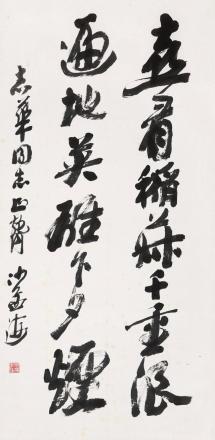 喜看稻菽千重浪
遍地英雄下夕煙
志華同志正腕
沙孟海